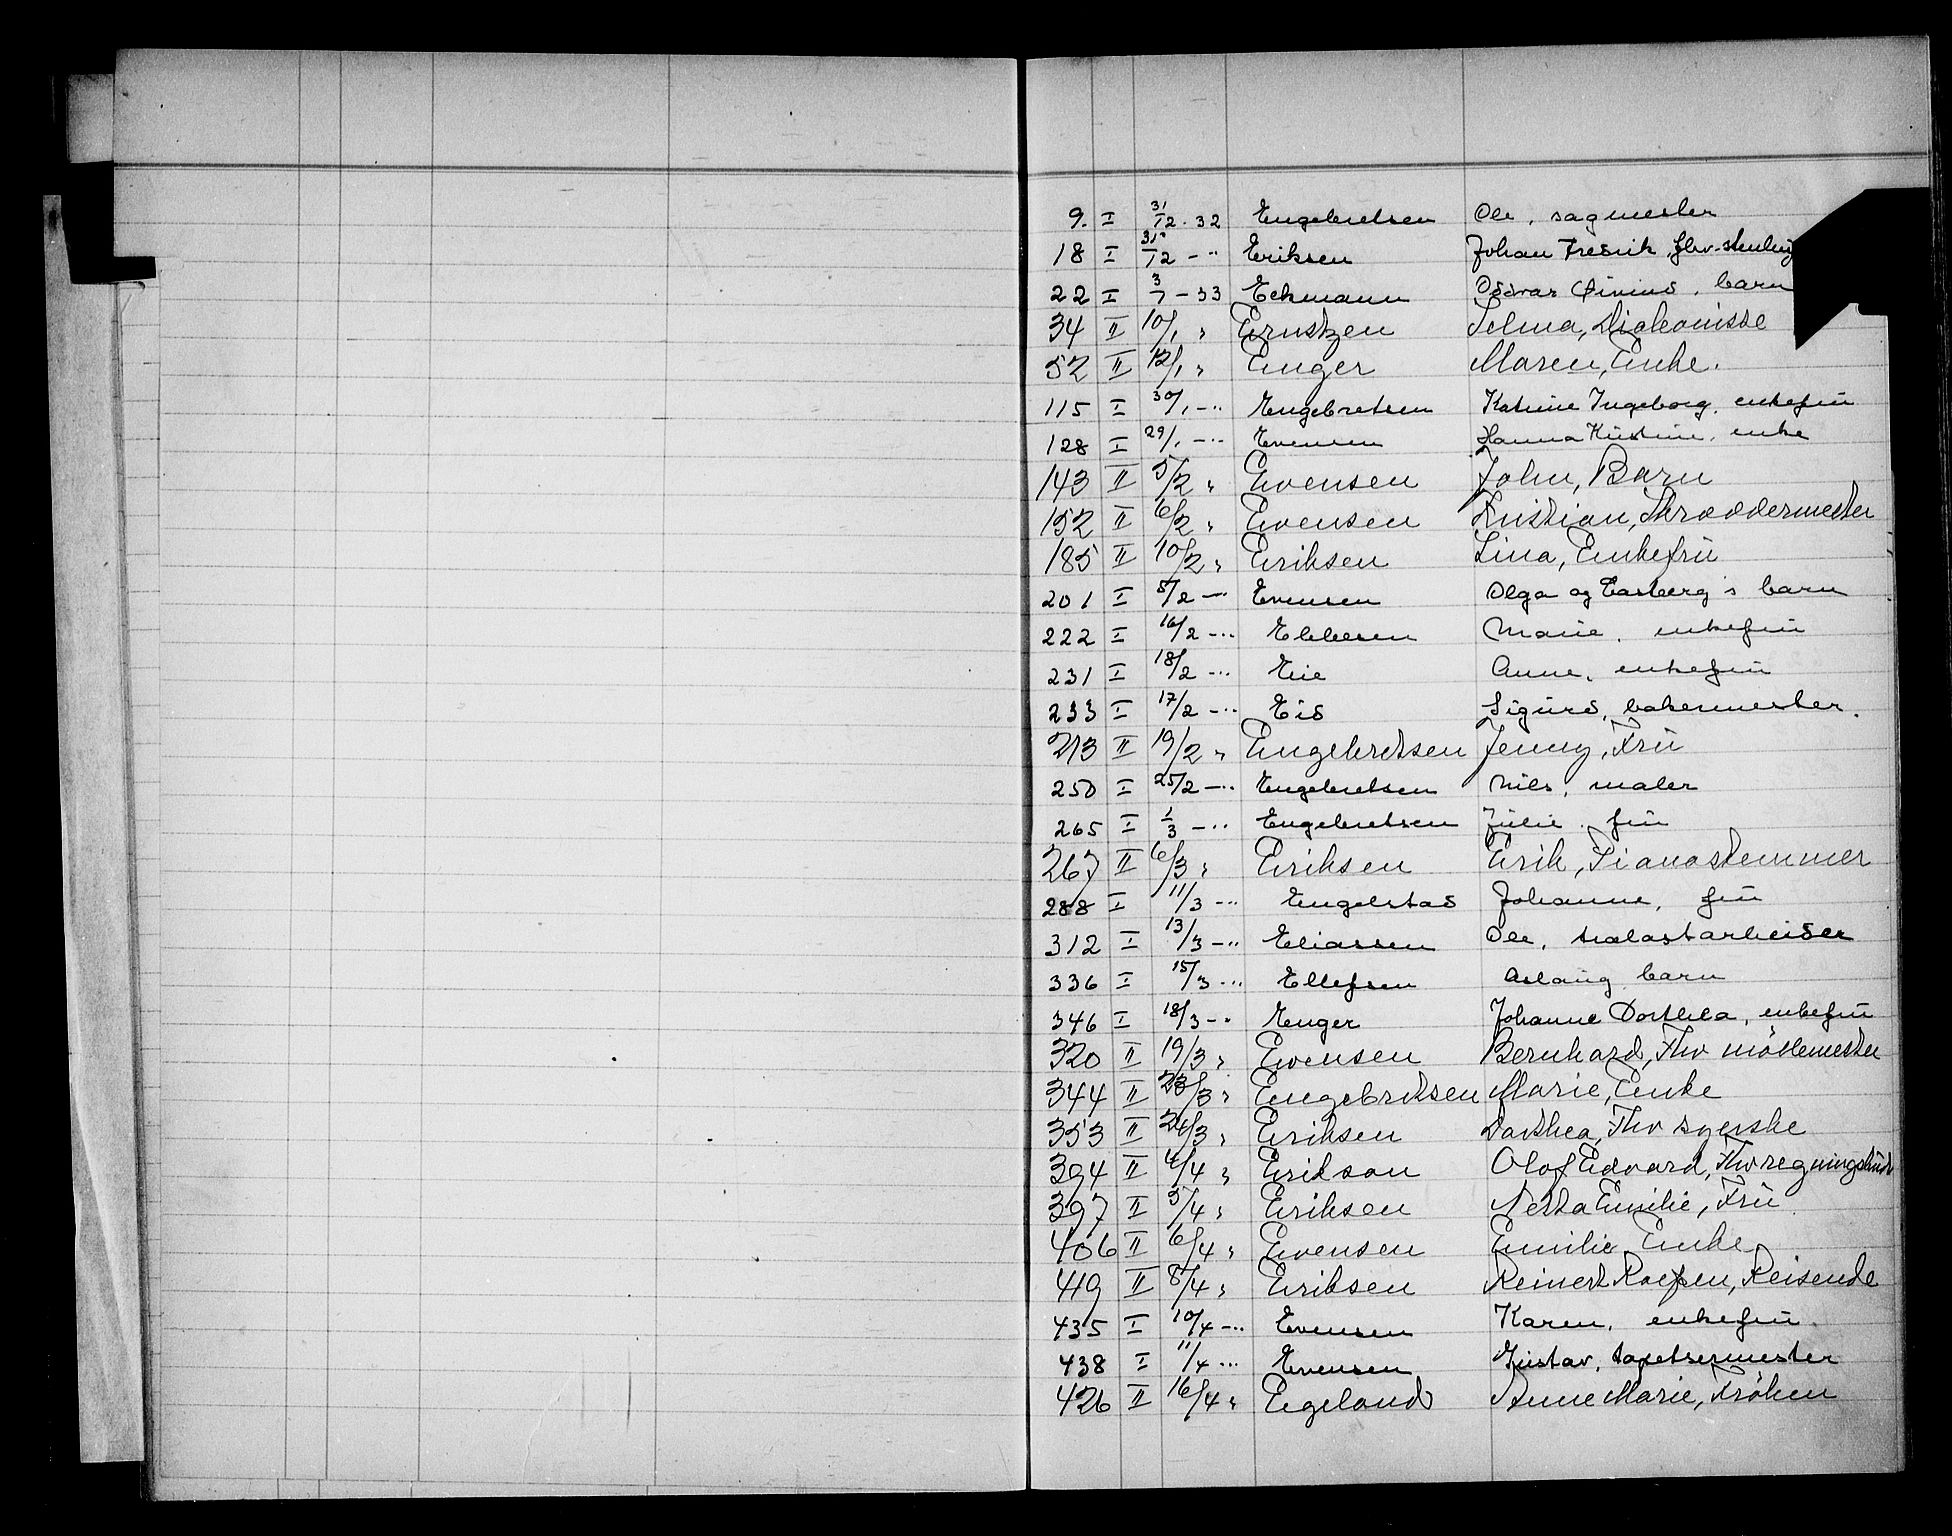 9. I 31/12 - 32 Engebretsen Ole, sagmester
18 I 31/12 - " Eriksen Johan Fredrik, fhv.
22 I 3/7 - 33 Eckmann Oddvar Øivind, barn
34 II 10/1 " Erntzen Selma, Diakonisse
52 II 12/1 " Enger Maren, Enke.
115 I 30/1 - " Engebretsen Katrine Ingeborg, enkefrü
128 I 29/1 - " Evensen Hanna Kristine, enke
143 II 5/2 " Evensen John, Barn
152 II 6/2 " Evensen Kristian, Skræddermester
185 II 10/2 " Eriksen Lina, Enkefrü
201 I 5/2 - " Evensen Olga og s barn
222 I 16/2 - " Ebbesen Marie, enkefrü
231 I 18/2 - " Eie Anne, enkefrü
233 I 17/2 - " Eid Sigurd, bakermester.
213 II 19/2 " Engebretsen Jenny, Frü
250 I 25/2 - " Engebretsen Nils, maler
265 I 1/3 - " Engebretsen Julie, frü
267 II 6/3 " Eriksen Erik, Pianostemmer
288 I 11/3 - " Engelstad Johanne, frü
312 I 13/3 - " Eliassen Ole, trælastarbeider
336 I 15/3 - " Ellefsen Aslaüg barn
346 I 18/3 - " Enger Johanne Dorthea, enkefrü
320 II 19/3 " Evensen Bernhard, Fhv møllemester
344 II 23/3 " Engebretsen Marie, Enke
353 II 24/3 " Eriksen Dorthea, Fhv syerske
394 II 4/4 " Erikson Olof Edvard, Fhv
397 II 5/4 " Eriksen Netta Emilie, Frü
406 II 6/4 " Evensen Emilie Enke
419 II 8/4 " Eriksen Reinert Roefsen, Reisende
435 I 10/4 - " Evensen Karen, enkefrü.
438 I 11/4 - " Evensen Güstav, tapetsermester
426 II 16/4 " Egeland Anne Marie, Frøken